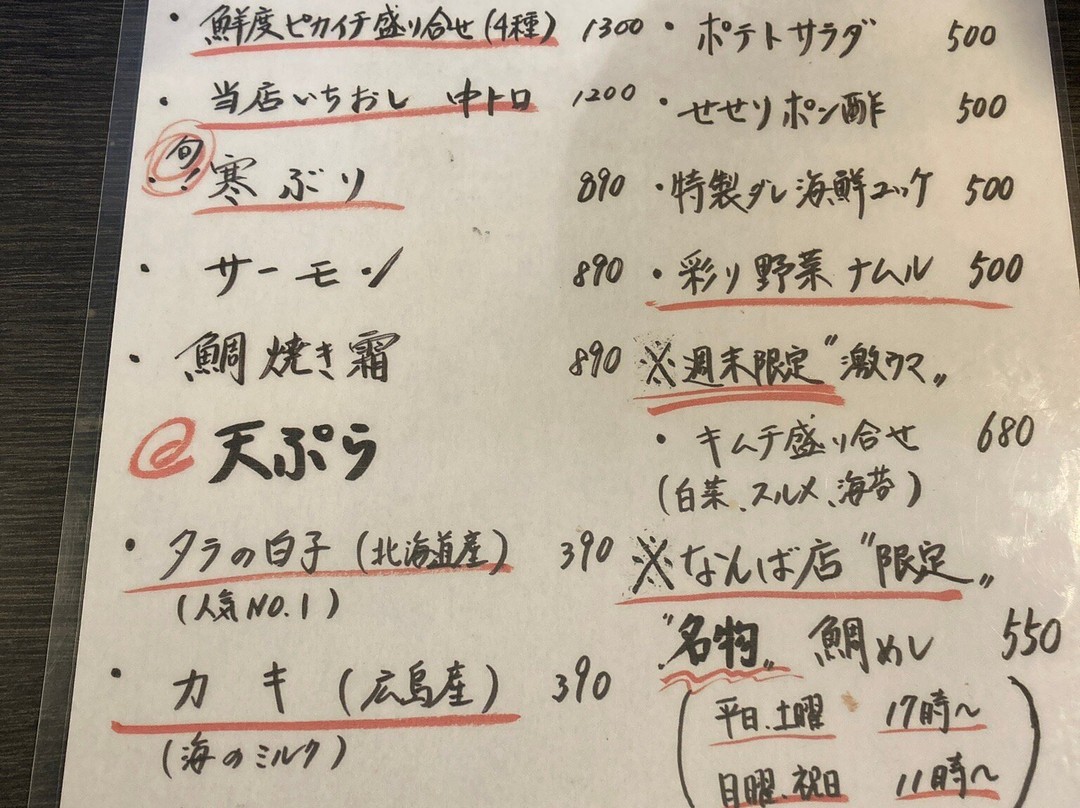 ・鮮度ピカイチ盛り合せ(4種) 1300
・当店いちおし 中トロ 1200
旬!
・寒ぶり 890
・サーモン 890
・鯛焼き霜 890
天ぷら
・タラの白子(北海道産) 390
(人気NO.1)
・カキ(広島産) 390
(海のミルク)
・ポテトサラダ 500
・せせりポン酢 500
・特製ダレ海鮮ユッケ 500
・彩り野菜ナムル 500
※週末限定"激ウマ"
・キムチ盛り合せ 680
(白菜、スルメ、海苔)
※なんば店"限定"
"名物"鯛めし 550
(平日、土曜 17時〜
日曜、祝日 11時〜)